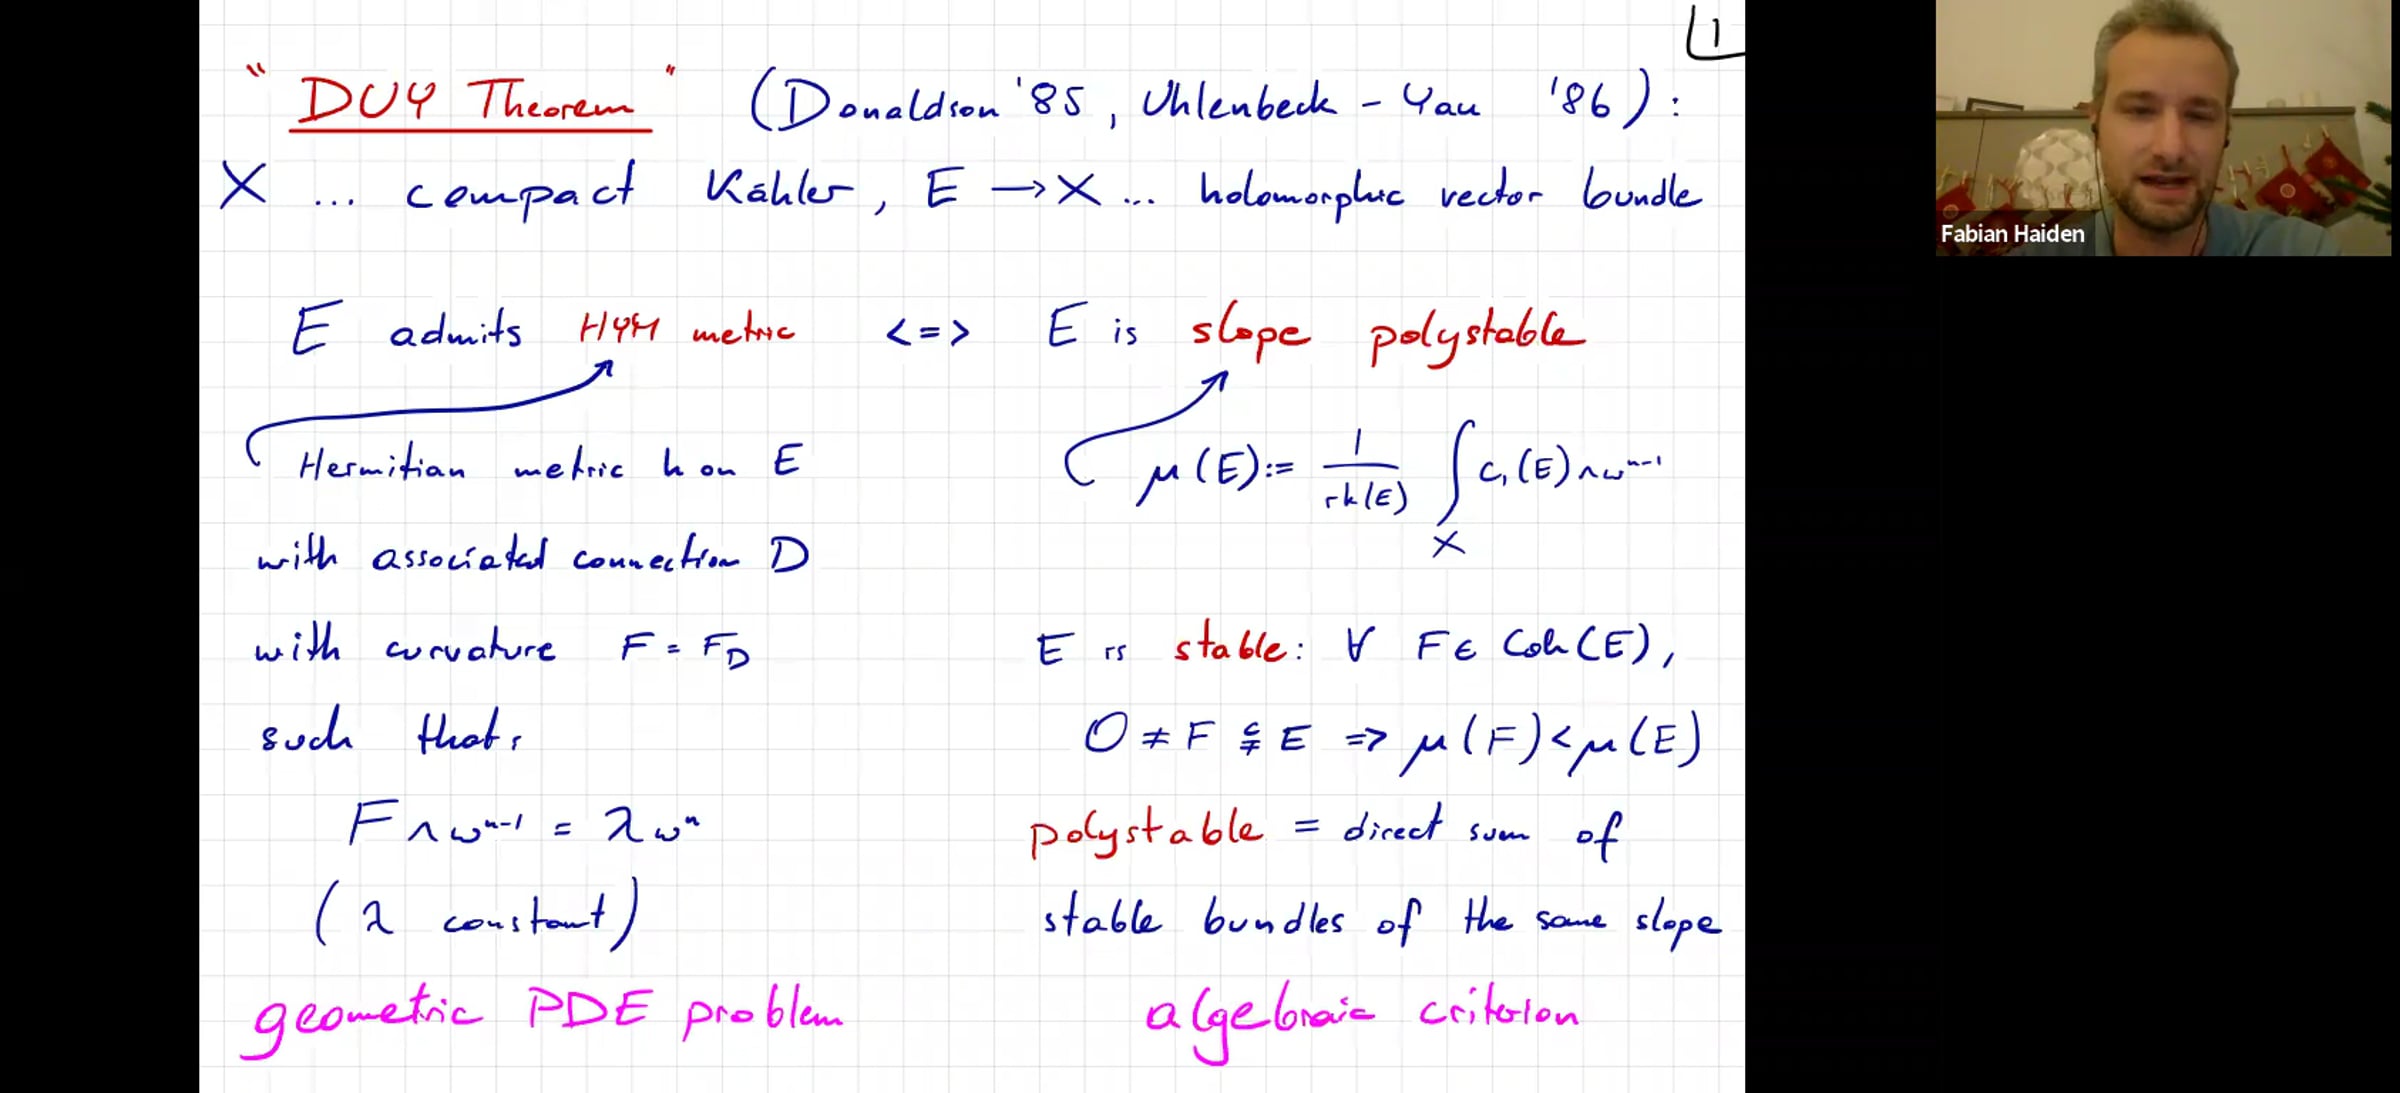 1
"DUY Theorem" (Donaldson '85, Uhlenbeck - Yau '86):
X ... compact Kähler, E → X ... holomorphic vector bundle
E admits HYM metric <=> E is slope polystable
Hermitian metric h on E
with associated connection D
with curvature F = F_D
such that:
F ∧ ω^{n-1} = λ ω^n
(λ constant)
geometric PDE problem
μ(E) := 1/rk(E) ∫_X c₁(E) ∧ ω^{n-1}
E is stable: ∀ F ∈ Coh(E),
0 ≠ F ⊊ E => μ(F) < μ(E)
polystable = direct sum of
stable bundles of the same slope
algebraic criterion
Fabian Haiden